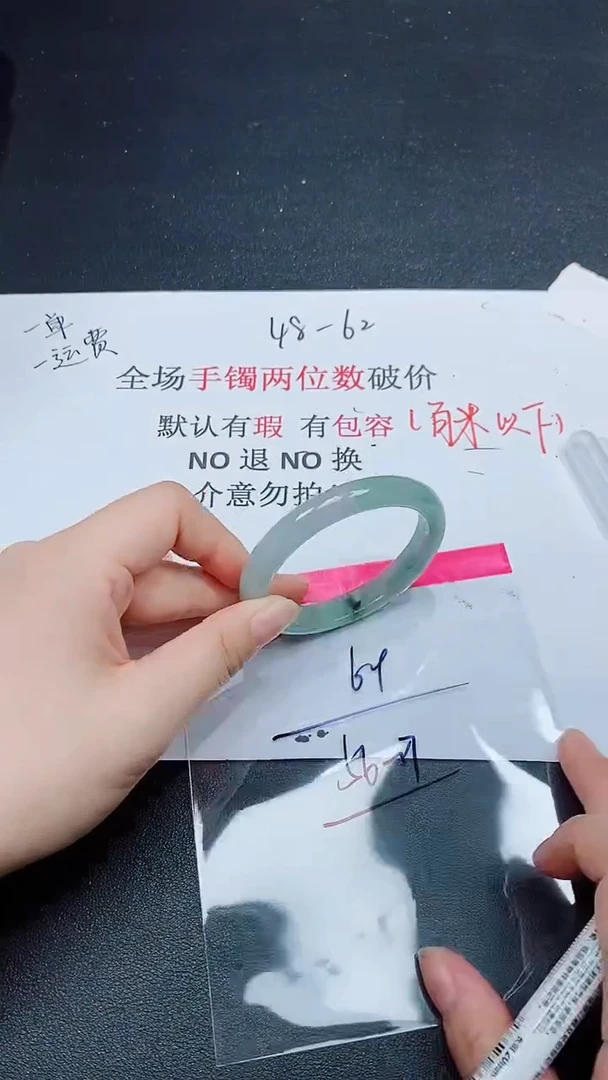 48-62
一单
一运费
全场手镯两位数破价
默认有瑕 有包容(百米以下)
NO退NO换
介意勿拍
64